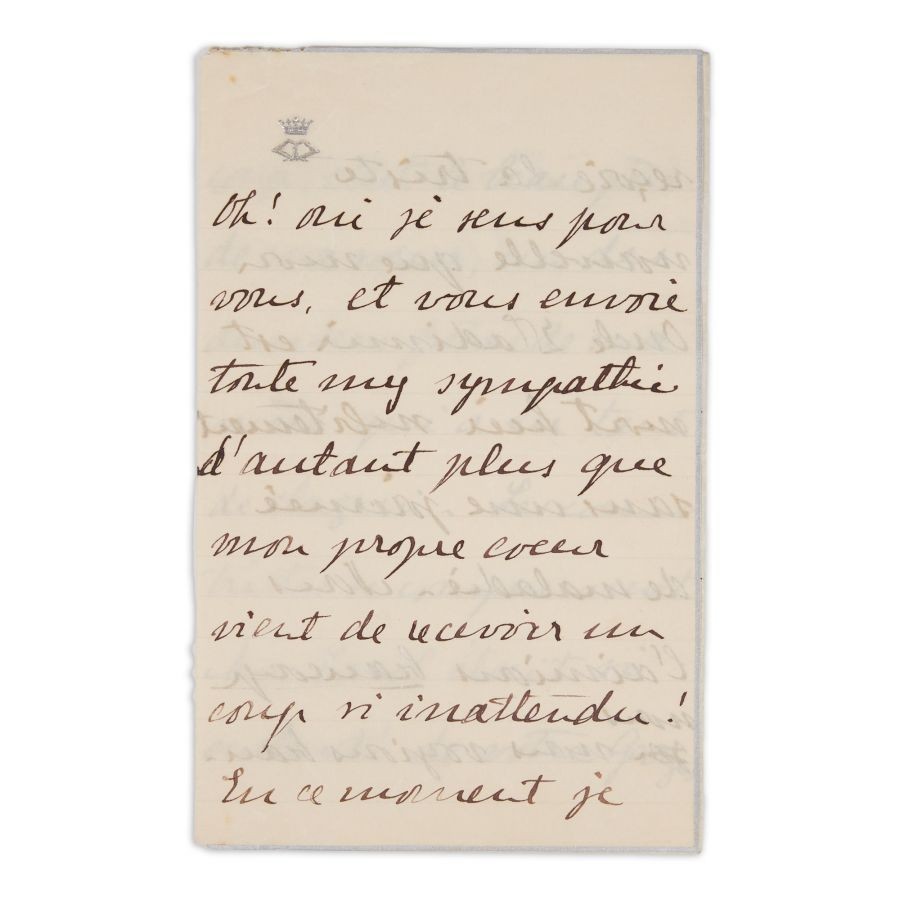 Oh! oui je sens pour
vous, et vous envoie
toute my sympathie
d'autant plus que
mon propre coeur
vient de recevoir un
coup si inattendu!
En ce moment je